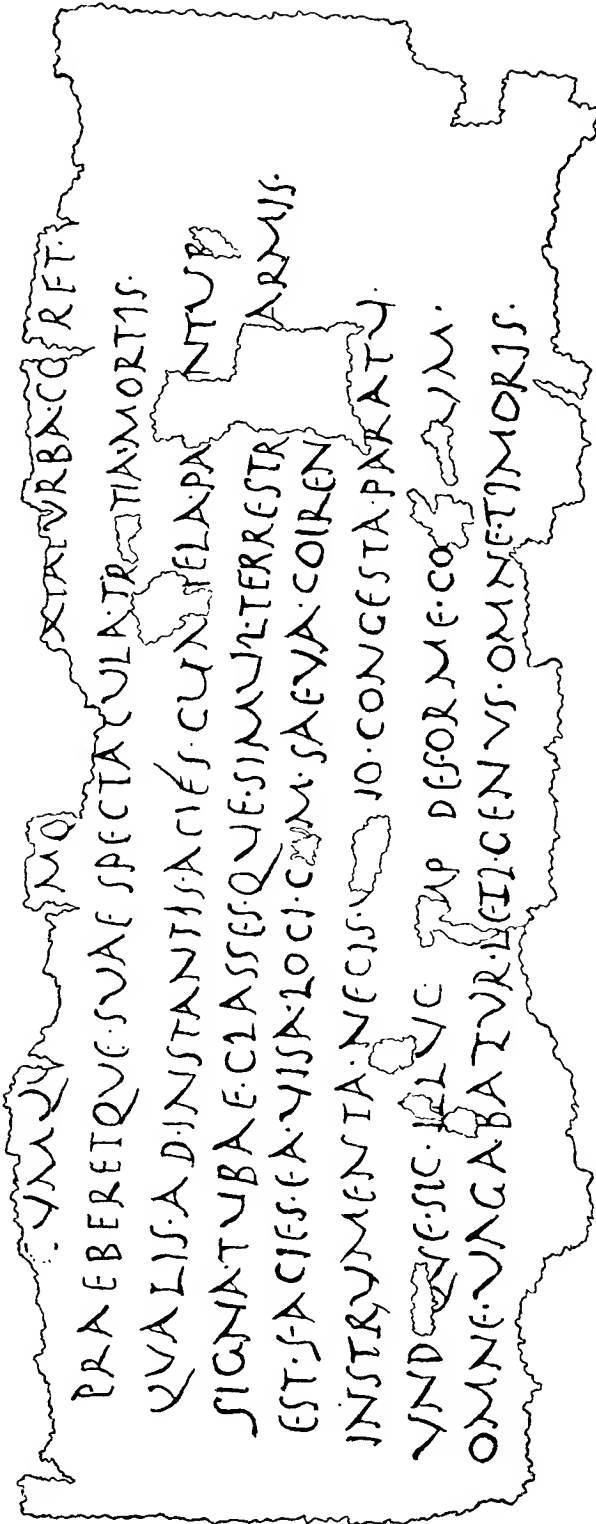 VMQV MQ XIATVRBA·CO RET·
PRAEBERETQVE·SVAE SPECTACULA·TR TIA·MORTIS·
QVALIS·AD·INSTANTIS·ACIÉS·CUM TELA·PA NTUR
SIGNATUBAE·CLASSESQUE·SIMUL·TERRESTR ARMIS·
EST·FACIES·EA·VISA·LOCI·C M·SAEVA·COIREN
INSTRVMENTA·NECIS·V IO·CONGESTA·PARATV·
VND QVE·SIC·ILLVC MP DEFORME·CO VM·
OMNE·VAGABATUR·LETI·GENVS·OMNE·TIMORIS·